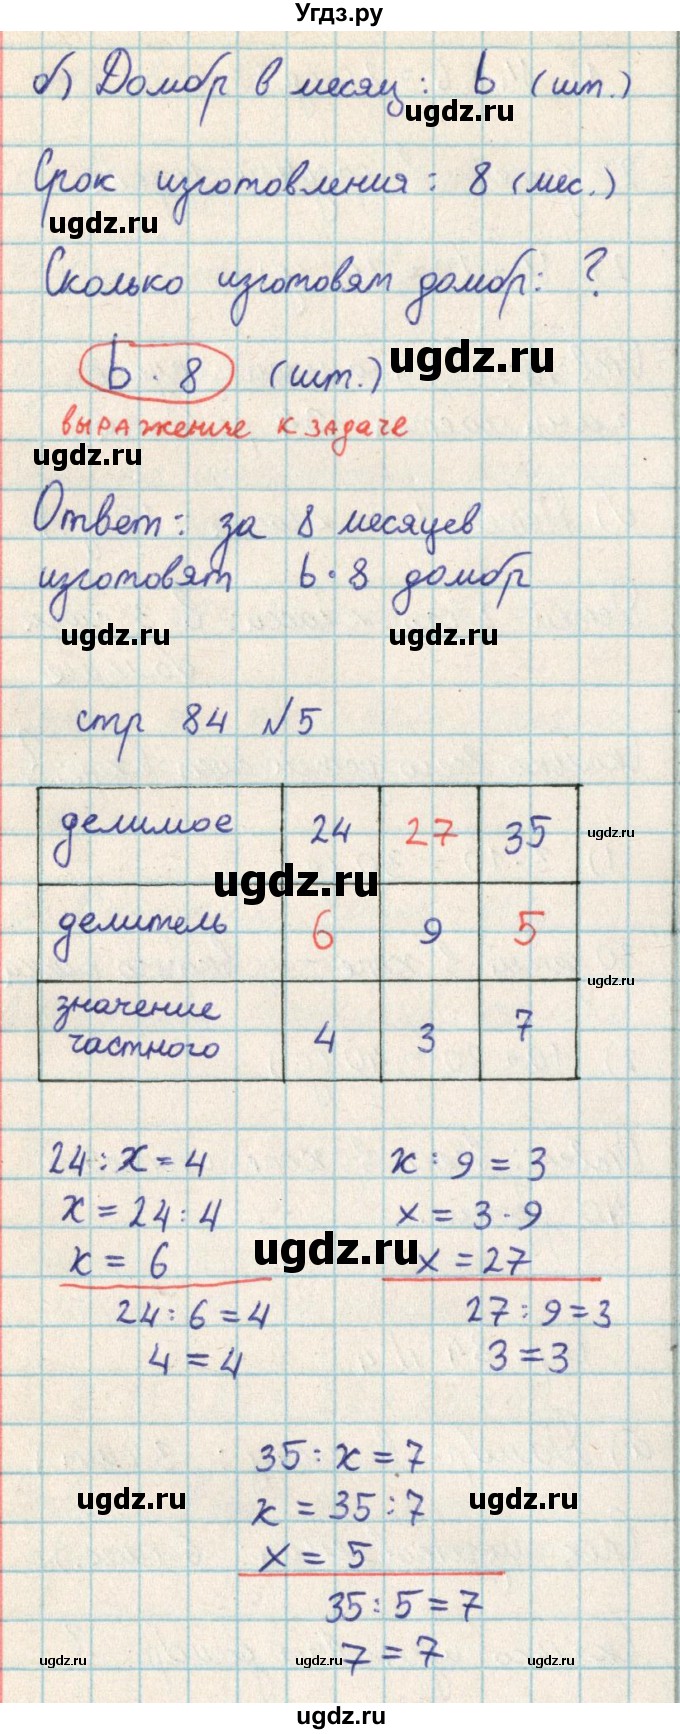 Угдз.ру
б) Домбр в месяц: b (шт.)
ugdz.ru
Срок изготовления: 8 (мес.)
ugdz.ru
Сколько изготовят домбр: ?
b · 8 (шт.)
ugdz.ru
выражение к задаче
ugdz.ru
Ответ: за 8 месяцев
изготовят b·8 домбр
ugdz.ru ugdz.ru
стр 84 №5
делимое 24 27 35
ugdz.ru
ugdz.ru
делитель 6 9 5
ugdz.ru
значение
частного 4 3 7
24 : x = 4 x : 9 = 3
x = 24 : 4 x = 3 · 9
x = 6 x = 27
ugdz.ru
24 : 6 = 4 27 : 9 = 3
4 = 4 3 = 3
35 : x = 7
ugdz.ru ugdz.ru
x = 35 : 7
x = 5
35 : 5 = 7
7 = 7
ugdz.ru ugdz.ru ugdz.ru
ugdz.ru